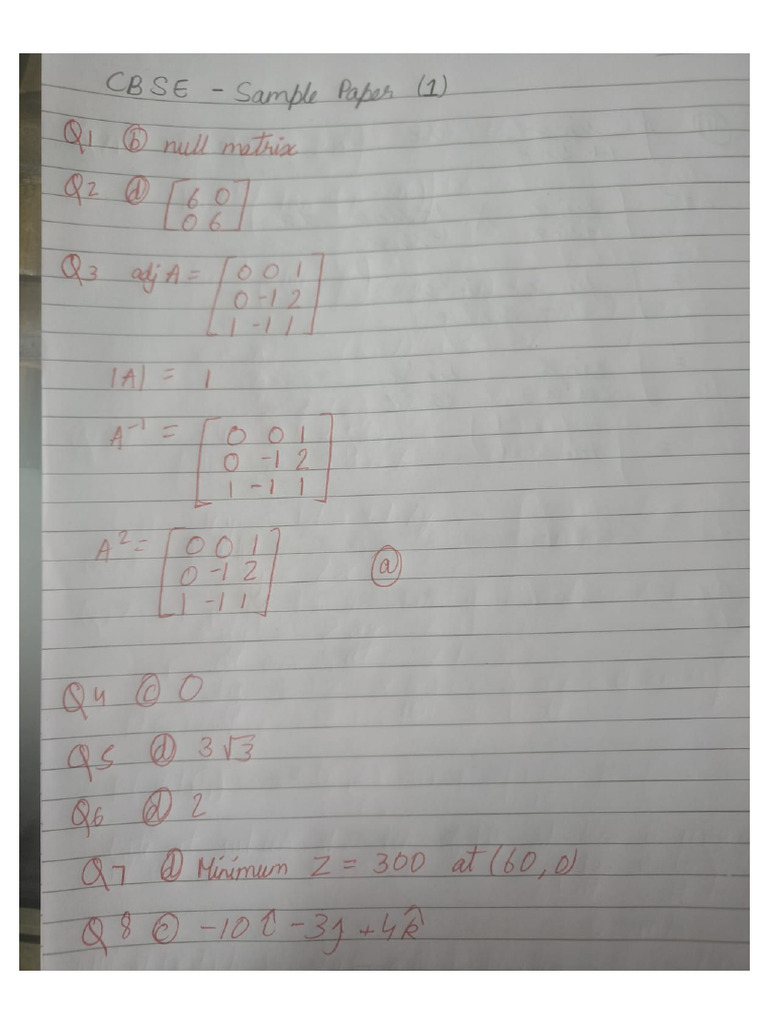 CBSE - Sample Paper (1)
Q1 ⓑ null matrix
Q2 ⓓ [6 0
0 6]
Q3 adj A = [0 0 1
0 -1 2
1 -1 1]
|A| = 1
A⁻¹ = [0 0 1
0 -1 2
1 -1 1]
A² = [0 0 1
0 -1 2
1 -1 1] ⓐ
Q4 ⓒ 0
Q5 ⓓ 3√3
Q6 ⓓ 2
Q7 ⓓ Minimum Z = 300 at (60, 0)
Q8 ⓒ -10î - 3ĵ + 4k̂